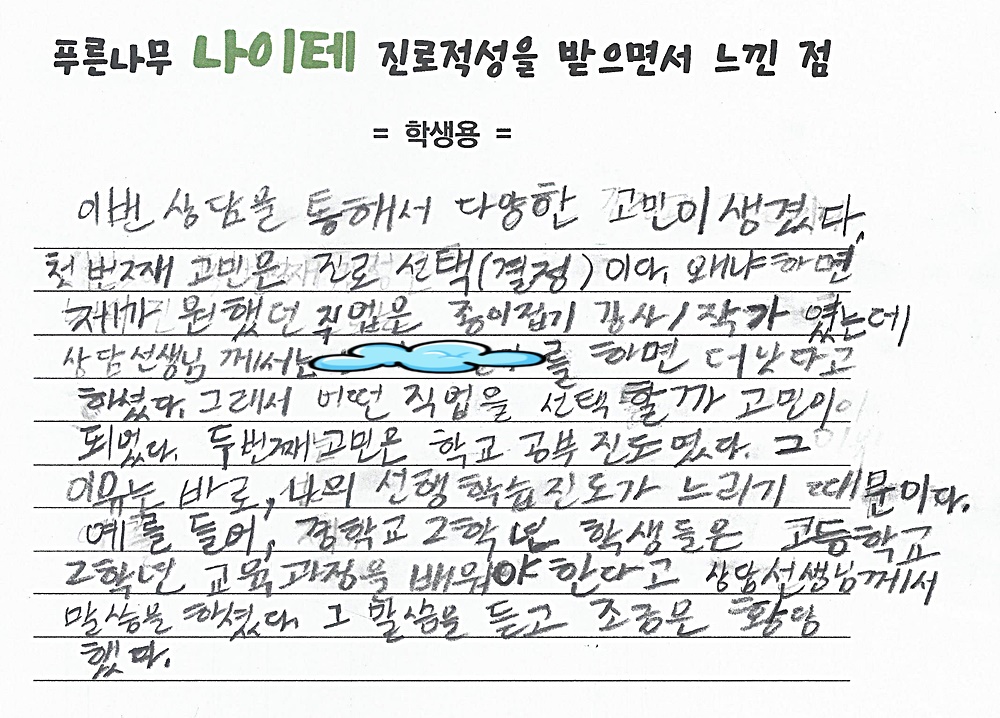 푸른나무 나이테 진로적성을 받으면서 느낀 점
= 학생용 =
이번 상담을 통해서 다양한 고민이 생겼다.
첫 번째 고민은 진로 선택(결정)이다. 왜냐하면
제가 원했던 직업은 종이접기 강사/작가 였는데
상담선생님 께서는 를 하면 더 낫다고
하셨다. 그래서 어떤 직업을 선택 할까 고민이
되었다. 두번째 고민은 학교 공부 진도 였다. 그
이유는 바로, 나의 선행학습진도가 느리기 때문이다.
예를 들어, 중학교 2학년 학생들은 고등학교
2학년 교육과정을 배워야 한다고 상담선생님께서
말씀을 하셨다. 그 말씀을 듣고 조금은 황당
했다.